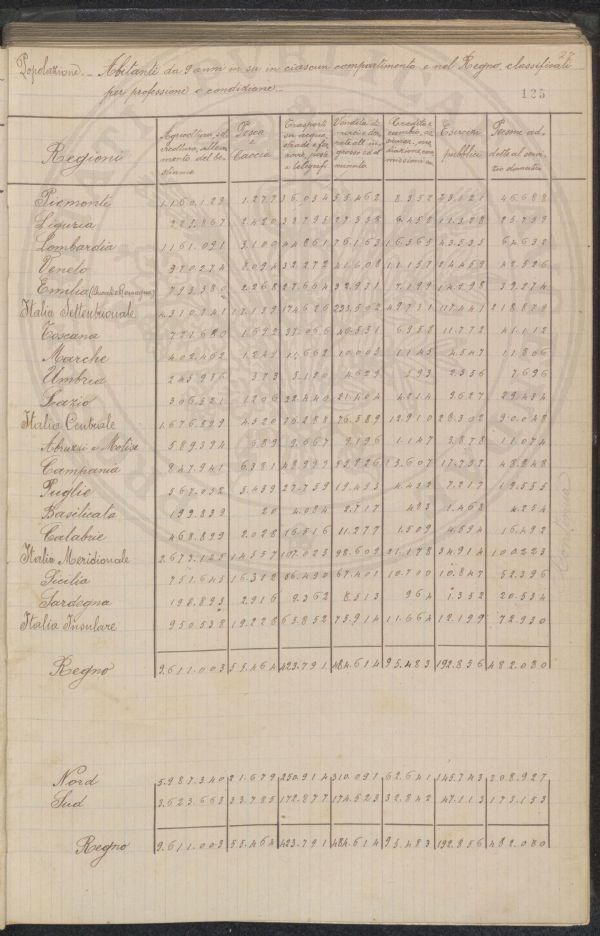 27
Popolazione. Abitanti da 9 anni in su in ciascun compartimento e nel Regno, classificati
per professione e condizione.
125
Regioni
Agricoltura, sil
vicoltura, alleva
mento del be
stiame
Pesca
e
Caccia
Trasporti
su acqua,
strade e fer
rovie, poste
e telegrafi
Credito e
cambio,
Esercizi
pubblici
Persone ad
dette al servi
zio domestico
Piemonte 1.160.123 1.277 36.034 55.462 8.352 23.121 46.688
Liguria 2.420 6.452 11.328 25.739
Lombardia 1.161.091 3.100 44.861 76.163 16.565 43.535 64.632
Veneto 370.274 8.094 32.272 41.608 11.157 24.459 42.526
Emilia 2.268 27.664 32.931 7.199 14.298 39.274
Italia Settentrionale 17.159 174.626 233.502 49.731 117.441 218.879
Toscana 771.680 1.692 46.531 6.952 11.772 41.112
Marche 402.402 1.249 10.662 10.005 1.145 4.547 11.806
Umbria 373 5.120 4.629 593 2.356 7.696
Lazio 1.206 22.440 4.214 9.627 29.434
Italia Centrale 1.676.899 4.520 76.288 76.589 12.910 28.302 90.048
Abruzzi e Molise 589.394 689 9.667 9.196 1.147 3.878 11.074
Campania 847.941 6.381 48.999 13.607 17.757 48.848
Puglie 567.052 5.439 27.759 19.455 4.432 7.217 19.555
Basilicata 199.839 20 4.084 2.717 483 1.468 4.254
Calabrie 468.899 2.028 16.516 11.279 1.509 4.594 16.492
Italia Meridionale 2.673.125 14.557 107.025 98.609 21.178 34.914 100.223
Sicilia 751.645 16.312 56.490 67.401 10.700 10.847 52.396
Sardegna 198.893 2.916 9.362 8.513 964 1.352 20.534
Italia Insulare 950.538 19.228 65.852 75.914 11.664 12.199 72.930
Regno 9.611.003 55.464 423.791 484.614 95.483 192.856 482.080
Nord 5.987.340 21.679 250.914 310.091 62.641 145.743 308.927
Sud 3.623.663 33.785 172.877 174.523 32.842 47.113 173.153
Regno 9.611.003 55.464 423.791 484.614 95.483 192.856 482.080